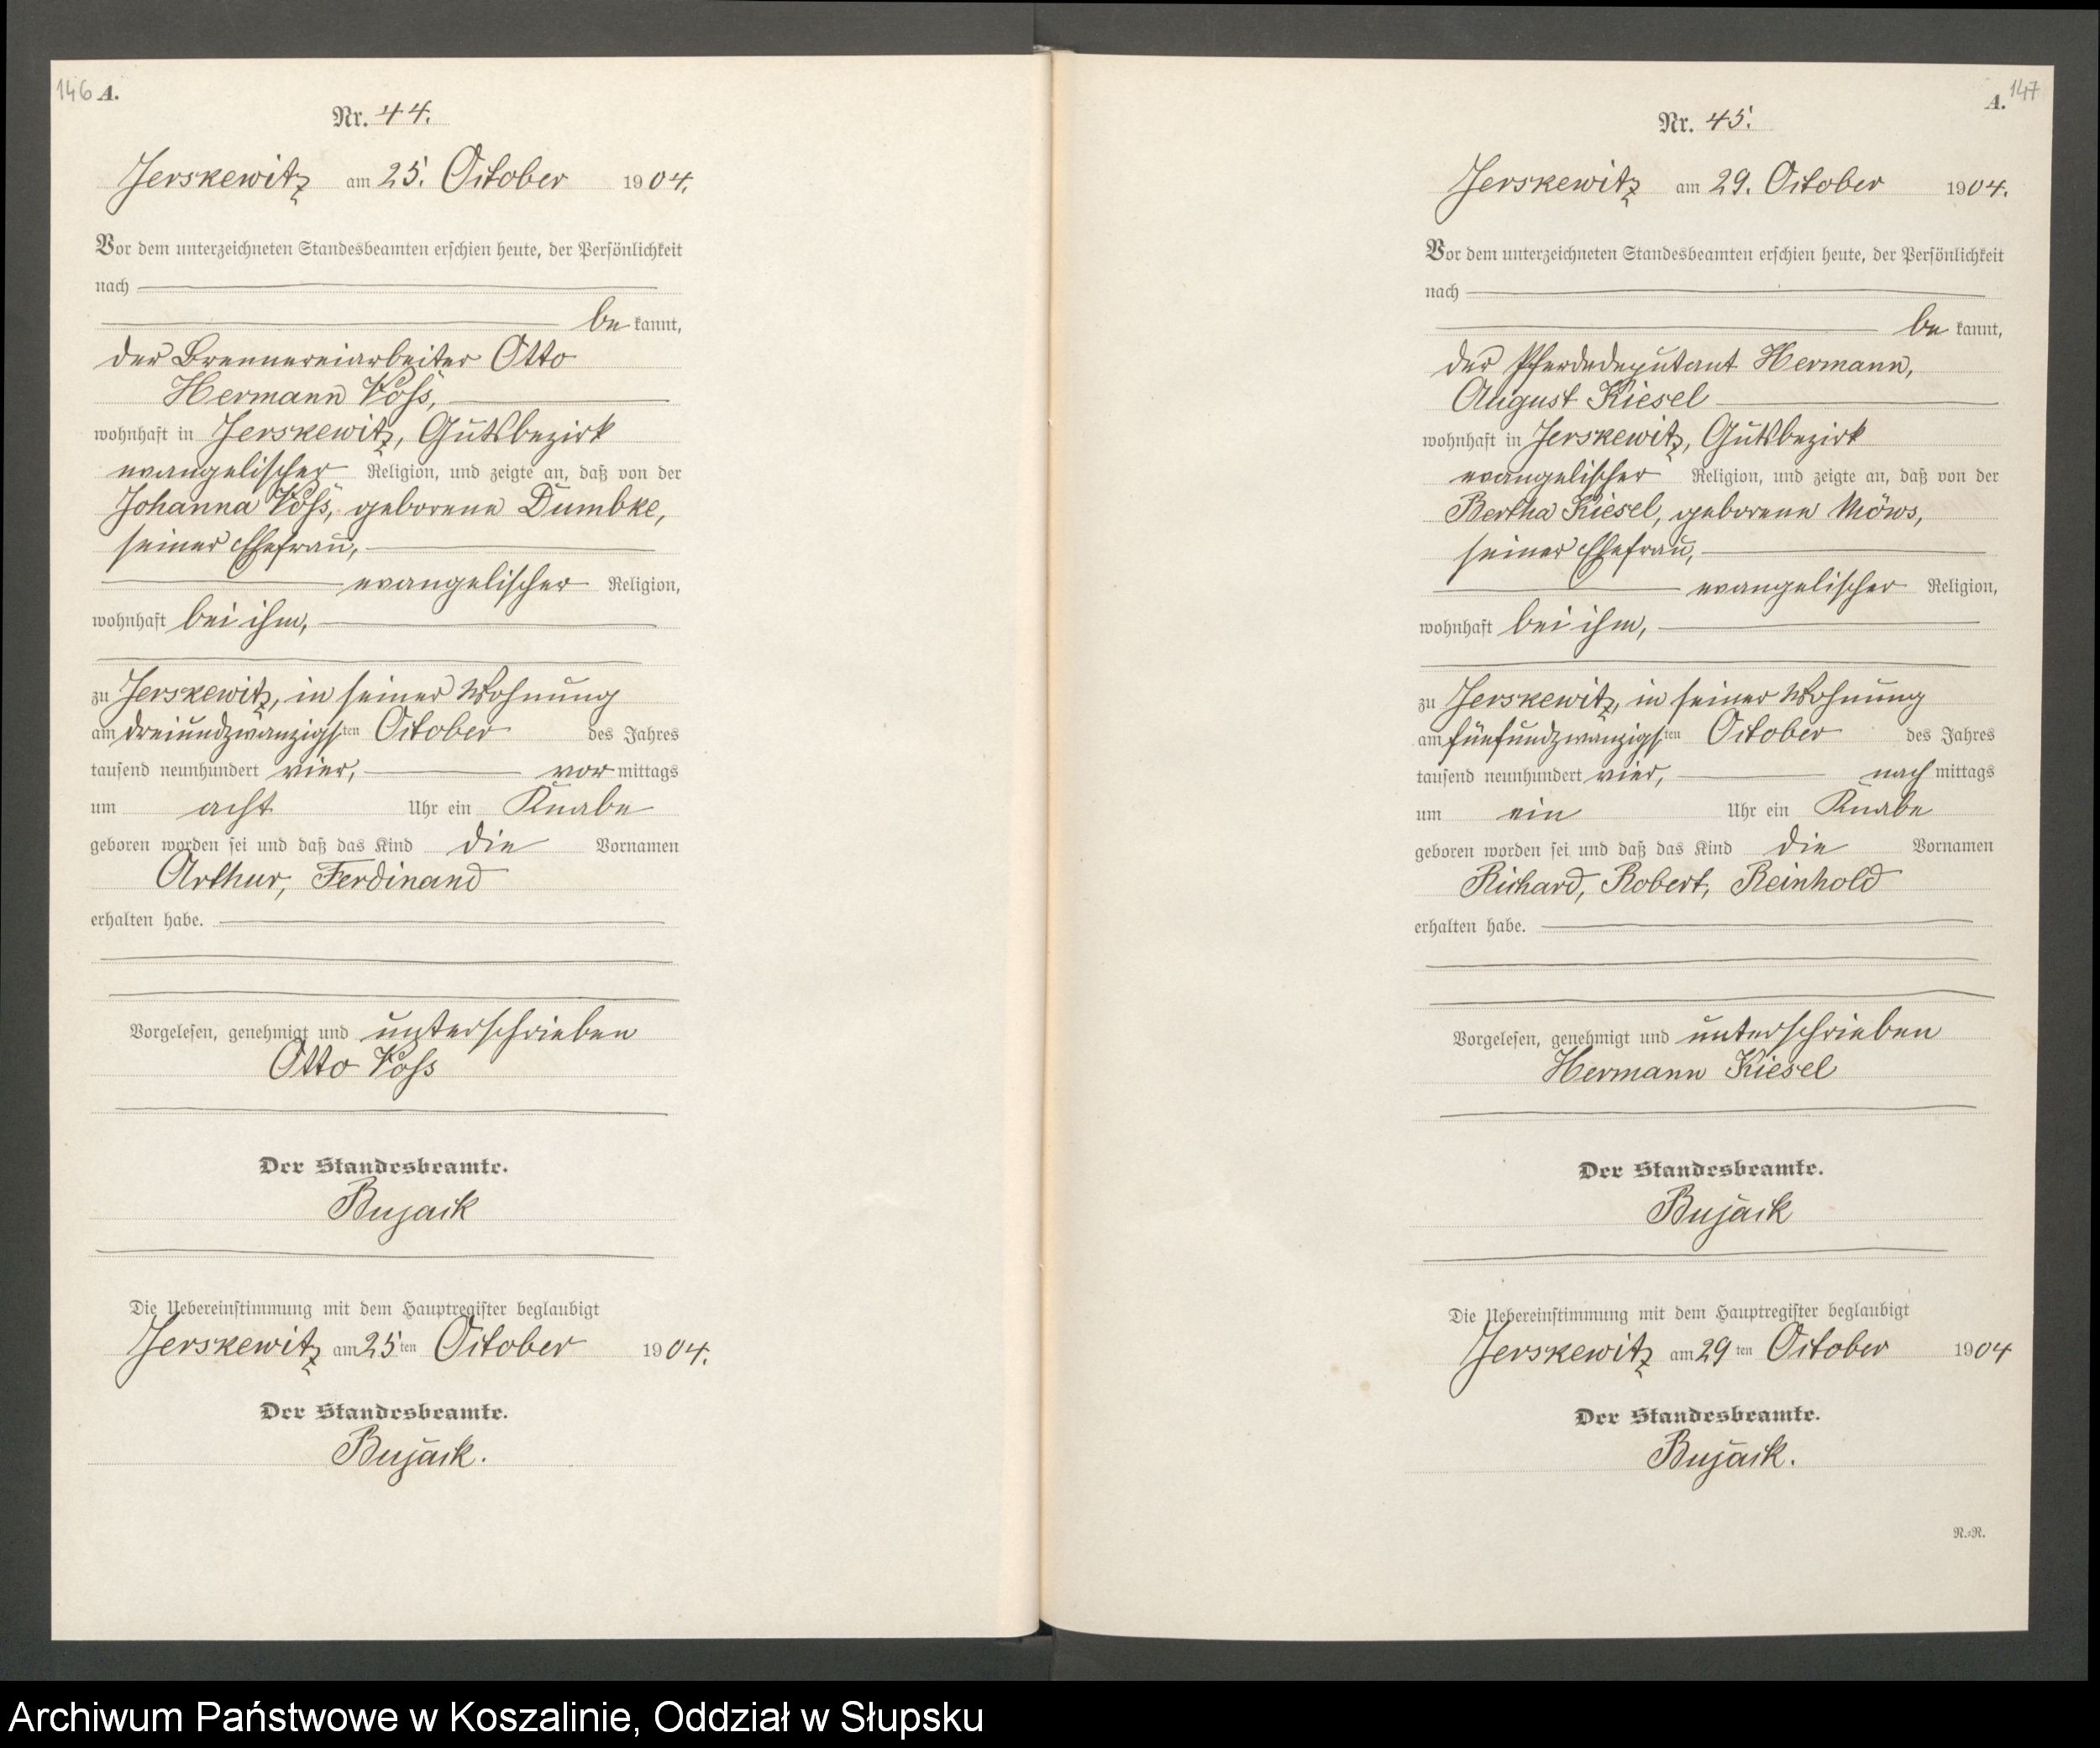 146 A.
Nr. 44.
Jerskewitz am 25. October 1904.
Vor dem unterzeichneten Standesbeamten erschien heute, der Persönlichkeit
nach
be kannt,
der Brennereiarbeiter Otto
Hermann Voß,
wohnhaft in Jerskewitz, Gutsbezirk
evangelischer Religion, und zeigte an, daß von der
Johanna Voß, geborene Dumbke,
seiner Ehefrau,
evangelischer Religion,
wohnhaft bei ihm,
zu Jerskewitz, in seiner Wohnung
am dreiundzwanzigsten October des Jahres
tausend neunhundert vier, vor mittags
um acht Uhr ein Knabe
geboren worden sei und daß das Kind die Vornamen
Arthur, Ferdinand
erhalten habe.
Vorgelesen, genehmigt und unterschrieben
Otto Voß
Der Standesbeamte.
Bujack
Die Uebereinstimmung mit dem Hauptregister beglaubigt
Jerskewitz am 25ten October 1904.
Der Standesbeamte.
Bujack.
A. 147
Nr. 45.
Jerskewitz am 29. October 1904.
Vor dem unterzeichneten Standesbeamten erschien heute, der Persönlichkeit
nach
be kannt,
der Pferdedeputant Hermann,
August Kiesel
wohnhaft in Jerskewitz, Gutsbezirk
evangelischer Religion, und zeigte an, daß von der
Bertha Kiesel, geborene Möws,
seiner Ehefrau,
evangelischer Religion,
wohnhaft bei ihm,
zu Jerskewitz, in seiner Wohnung
am fünfundzwanzigsten October des Jahres
tausend neunhundert vier, nach mittags
um ein Uhr ein Knabe
geboren worden sei und daß das Kind die Vornamen
Richard, Robert, Reinhold
erhalten habe.
Vorgelesen, genehmigt und unterschrieben
Hermann Kiesel
Der Standesbeamte.
Bujack
Die Uebereinstimmung mit dem Hauptregister beglaubigt
Jerskewitz am 29ten October 1904
Der Standesbeamte.
Bujack.
R.=R.
Archiwum Państwowe w Koszalinie, Oddział w Słupsku